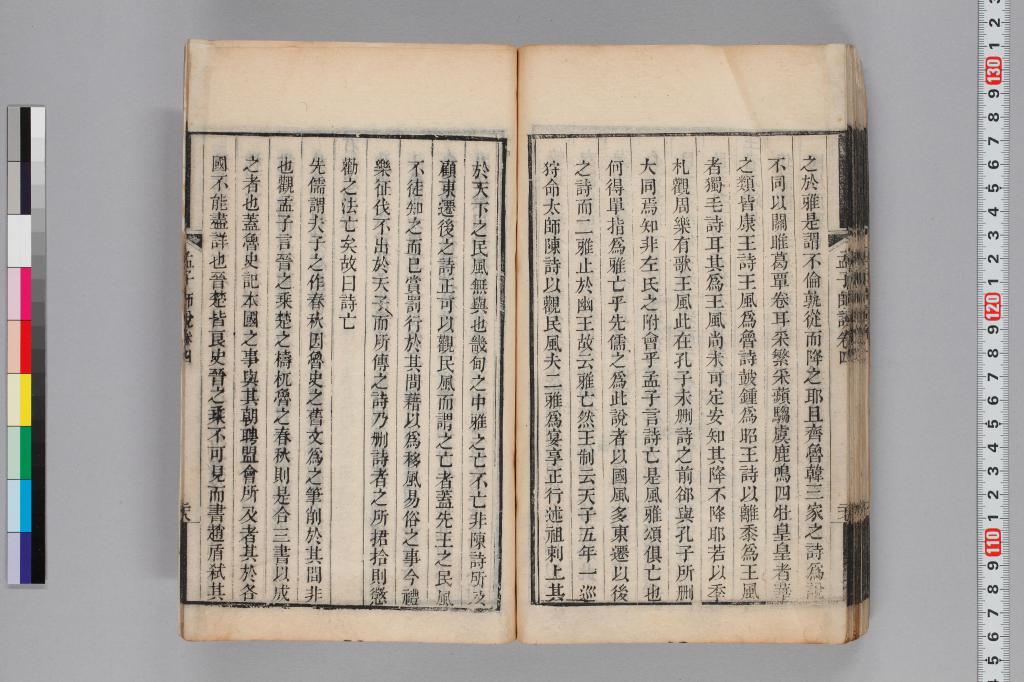 之於雅是謂不倫孰從而降之耶且齊魯韓三家之詩爲說
不同以關雎葛覃卷耳采蘩采蘋騶虞鹿鳴四牡皇皇者華
之類皆康王詩王風爲魯詩鼓鍾爲昭王詩以離黍爲王風
者獨毛詩耳其爲王風尚未可定安知其降不降耶若以季
札觀周樂有歌王風此在孔子未刪詩之前郤與孔子所刪
大同焉知非左氏之附會乎孟子言詩亡是風雅頌俱亡也
何得單指爲雅亡乎先儒之爲此說者以國風多東遷以後
之詩而二雅止於幽王故云雅亡然王制云天子五年一巡
狩命太師陳詩以觀民風夫二雅爲宴享正行述祖刺上其
孟子師說卷四
於天下之民風無與也畿甸之中雅之亡不亡非陳詩所及
顧東遷後之詩正可以觀民風而謂之亡者蓋先王之民風
不徒知之而已賞罰行於其間藉以爲移風易俗之事今禮
樂征伐不出於天子而所傳之詩乃刪詩者之所捃拾則懲
勸之法亡矣故曰詩亡
先儒謂夫子之作春秋因魯史之舊文爲之筆削於其間非
也觀孟子言晉之乘楚之檮杌魯之春秋則是合三書以成
之者也蓋魯史記本國之事與其朝聘盟會所及者其於各
國不能盡詳也晉楚皆良史晉之乘不可見而書趙盾弒其
孟子師說卷四